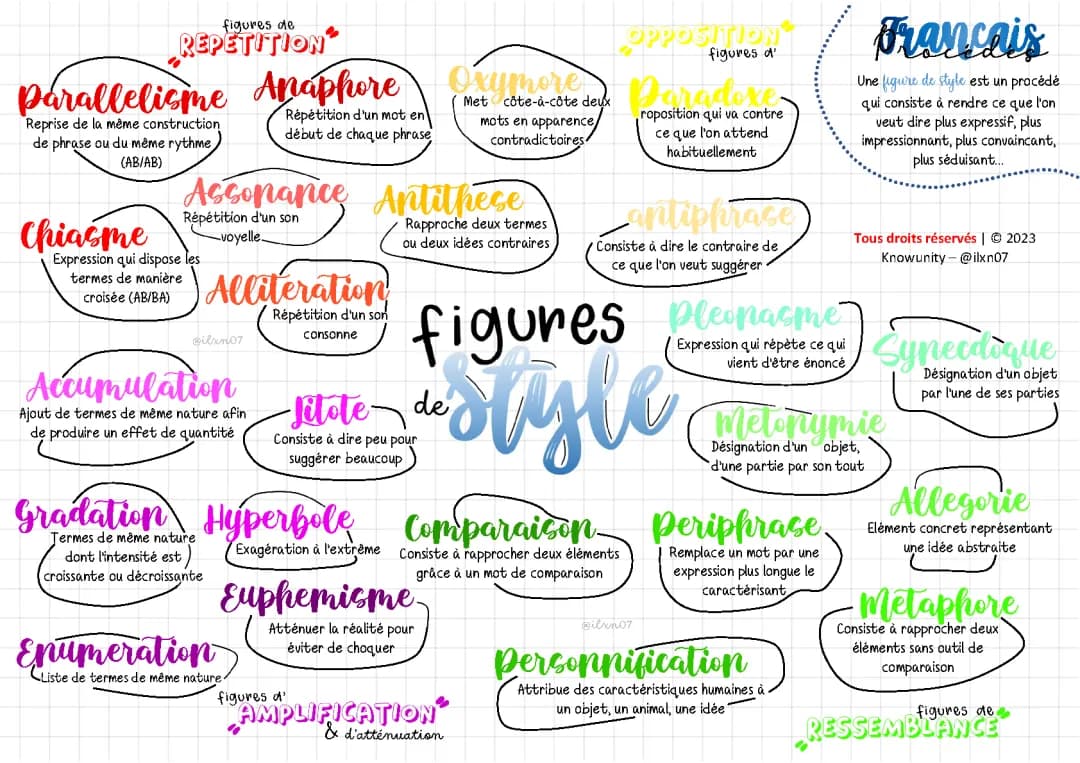 figures de
REPETITION
Parallelisme
Reprise de la même construction
de phrase ou du même rythme
(AB/AB)
Anaphore
Répétition d'un mot en
début de chaque phrase
Assonance
Répétition d'un son
voyelle
Chiasme
Expression qui dispose les
termes de manière
croisée (AB/BA)
Alliteration
Répétition d'un son
consonne
@ilxn07
OPPOSITION
figures d'
Oxymore
Met côte-à-côte deux
mots en apparence
contradictoires
Paradoxe
roposition qui va contre
ce que l'on attend
habituellement
Antithese
Rapproche deux termes
ou deux idées contraires
antiphrase
Consiste à dire le contraire de
ce que l'on veut suggérer
Français
Procédés
Une figure de style est un procédé
qui consiste à rendre ce que l'on
veut dire plus expressif, plus
impressionnant, plus convaincant,
plus séduisant...
Tous droits réservés | © 2023
Knowunity – @ilxn07
figures
de style
Pleonasme
Expression qui répète ce qui
vient d'être énoncé
Synecdoque
Désignation d'un objet
par l'une de ses parties
Metonymie
Désignation d'un objet,
d'une partie par son tout
Allegorie
Elément concret représentant
une idée abstraite
Comparaison
Consiste à rapprocher deux éléments
grâce à un mot de comparaison
Periphrase
Remplace un mot par une
expression plus longue le
caractérisant
Metaphore
Consiste à rapprocher deux
éléments sans outil de
comparaison
@ilxn07
Personnification
Attribue des caractéristiques humaines à
un objet, un animal, une idée
figures de
RESSEMBLANCE
Accumulation
Ajout de termes de même nature afin
de produire un effet de quantité
Litote
Consiste à dire peu pour
suggérer beaucoup
Gradation
Termes de même nature
dont l'intensité est
croissante ou décroissante
Hyperbole
Exagération à l'extrême
Euphemisme
Atténuer la réalité pour
éviter de choquer
Enumeration
Liste de termes de même nature
figures d'
AMPLIFICATION
& d'atténuation